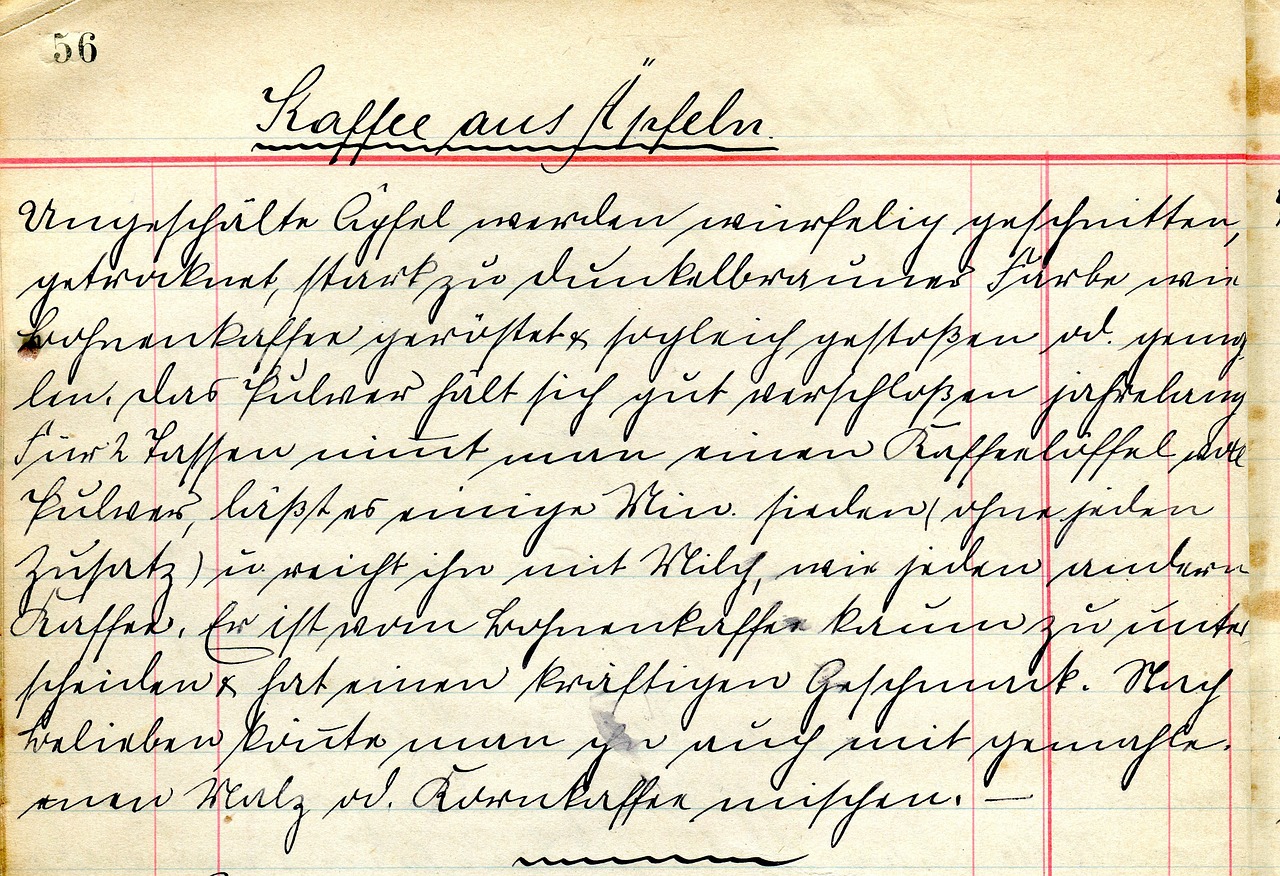 56
Kaffee aus Äpfeln.
Ungeschälte Äpfel werden würfelig geschnitten,
getrocknet, stark zu dunkelbrauner Farbe wie
Bohnenkaffee geröstet & sogleich gestoßen od. gemah
len. Das Pulver hält sich gut verschloßen jahrelang
Für 2 Tassen nim̄t man einen Kaffeelöffel voll
Pulver, läßt es einige Min. sieden (ohne jeden
Zusatz) u. reicht ihn mit Milch, wie jeden andern
Kaffee. Er ist vom Bohnenkaffee kaum zu unter
scheiden & hat einen kräftigen Geschmack. Nach
Belieben kön̄te man ihn auch mit gemahle.
enen Malz od. Kornkaffee mischen. —